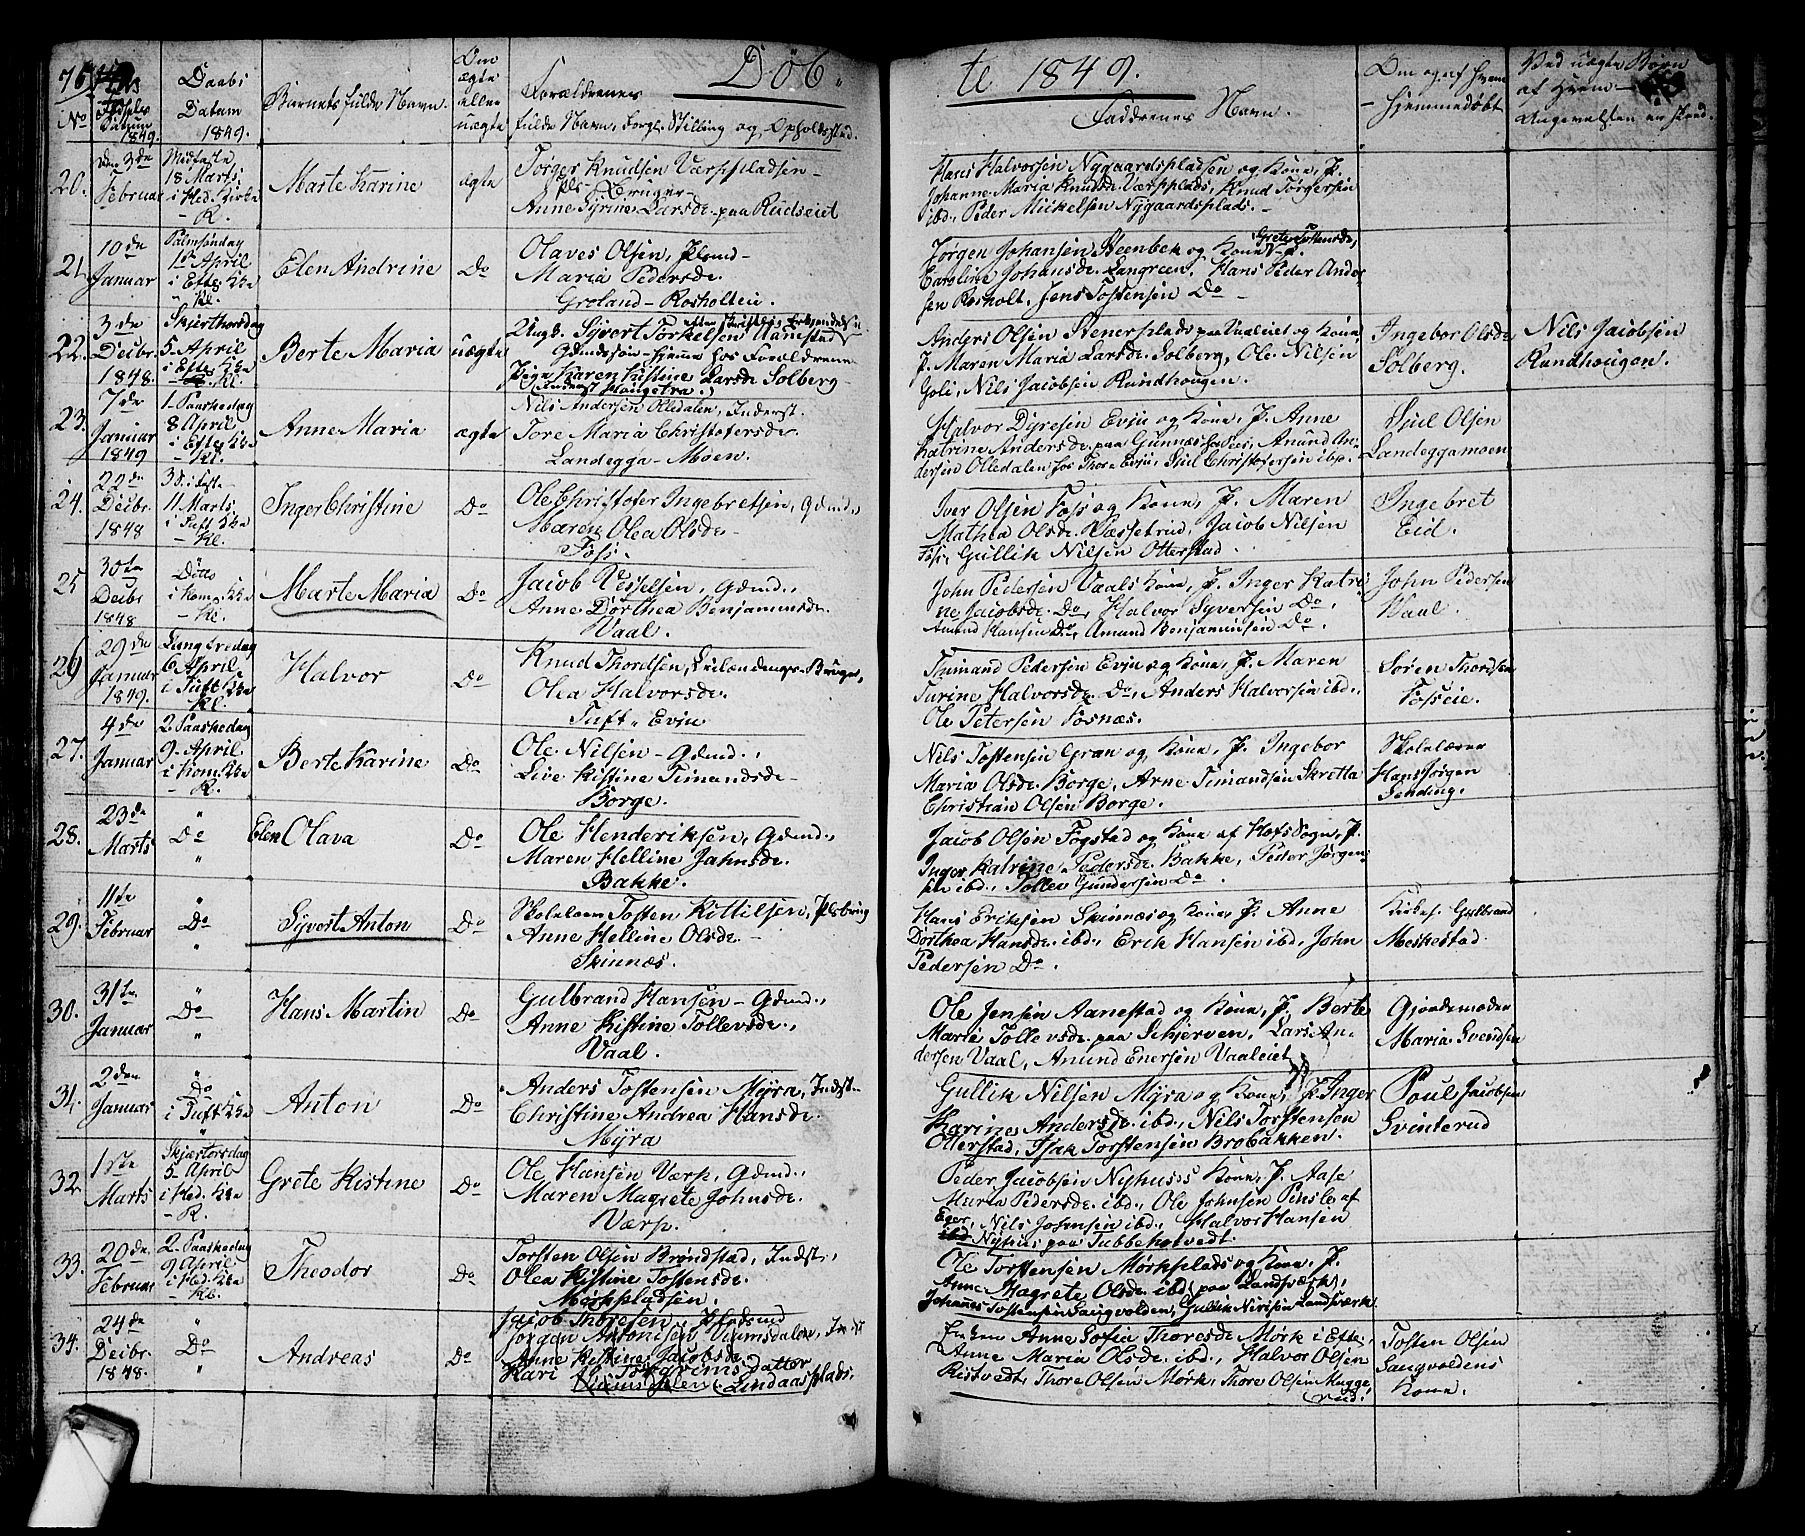 Døb
te 1849.
No
Fødsels Datum 1849.
Daabs Datum 1849.
Barnets fulde Navn.
Om ægte eller uægte
Forældrenes
fulde Navn, Stilling og Opholdssted.
Faddrenes Navn.
Om og af hvem
hjemmedøbt
Ved uægte Børn
af hvem
Angivelsen er skeed.
20.
den 3de Februar
18 Marts
i Hed. Kirke
- K.
Marte Karine
ægte
Torger Knudsen Værpspladsen -
Anne Syrine Larsdr. paa Rudseiet
Hans Halvorsen Nygaardspladsen og Kone, P.
Johanne Maria Knudsdr. Værpplads, Knud Torgersen
ibd., Peder Mickelsen Nygaardsplads. -
21.
10de Januar
Palmsøndag
1ste April
i Eftes Kke
- Kl.
Elen Andrine
Do
Olaves Olsen,
Maria Pedersdr.
Groland - Rosholteie.
Jørgen Johansen Steenbek og Kone
Caroline Johansdr. Langreen, Hans Peder Ander
sen Rosholt, Jens Tostensen Do -
22.
3de Decbr. 1848.
Skjerthorsdag
5. April
i Eftes Kke
Kl.
Berte Maria
uægte
Ungk. Syvert Torkelsen Aanestad
Gdmdssøn hjemme hos Forældrene
Pige Karen Kistine Larsdr. Solberg
Anders Olsen Stenersplads paa Vaaleiet og Kone,
P. Maren Maria Larsdr. Solberg, Ole Nilsen
Goli, Nils Jacobsen Rundhougen.
Ingebor Olsdr.
Solberg.
Nils Jacobsen
Rundhougen.
23.
7de Januar 1849
1. Paaskedag
8 April
i Eftes Kke
- Kl.
Anne Maria
ægte
Nils Andersen Olledalen, Inderst.
Tore Maria Christofersdr.
Landegga - Moen.
Halvor Dyresen Evju og Kone, P. Anne
Katrine Andersdr. paa Amund An
dersen Olledalen hos Thore Evju, Juel Christofersen ibd.
Juel Olsen
Landeggamoen
24.
22de Decbr. 1848
3. S. i Faste
11 Marts
i Tuft Kke
- Kl.
Inger Christine
Do
Ole Christofer Ingebretsen, Gdmd.,
Maren Olea Olsdr. -
Foss.
Iver Olsen Foss og Kone, P. Maren
Mathea Olsdr. Vassetrud, Jacob Nilsen
Foss, Gullik Nilsen Otterstad.
Ingebret
Eid.
25
30te Decbr. 1848
Ditto
i Kom. Kke
- Kl.
Marte Maria
Do
Jacob Vesselsen, Gdmd.,
Anne Dorthea Benjaminsdr.
Vaal.
John Pedersen Vaals Kone, P. Inger Katri
ne Jacobsdr. Do, Halvor Syversen Do,
Amund Hansen Do, Amund Benjaminsen Do.
John Pedersen
Vaal.
26
29de Januar 1849.
Langfredag
6. April
i Tuft Kke
Kl.
Halvor
Do
Knud Thordsen, Leilændings-Bruger,
Olea Halvorsdr.
Tuft - Evju
Thimand Pedersen Evju og Kone, P. Maren
Turine Halvorsdr. Do, Anders Halvorsen ibd.,
Ole Petersen Fosnæs.
Søren Thordsen
Fosseie.
27.
4de Januar
2. Paaskedag
9. April
i Kom. Kke
- K.
Berte Karine
Do
Ole Nilsen - Gdmd.,
Live Kistine Timandsdr. -
Borge.
Nils Tostensen Gran og Kone, P. Ingebor
Maria Olsdr. Borge, Arne Timandsen Skretta
Christian Olsen Borge.
Skolelærer
Hans Jørgen
Sending.
28.
23de Marts
"
Do
"
Elen Olava
Do
Ole Henderiksen, Gdmd.,
Maren Helline Jahnsdr.
Bakke.
Jacob Olsen Fogstad og Kone af Hofs Sogn, P.
Inger Katrine Pedersdr. Bakke, Peder Jørgen
sen ibd., Tollev Gundersen Do.
29.
11de Februar
"
Do
"
Syvert Anton
Do
Skolelærer Tosten Kittilsen,
Anne Helline Olsdr. -
Skinnæs.
Hans Eriksen Skinnæs og Kone, P. Anne
Dorthea Hansdr. ibd., Erik Hansen ibd., John
Pedersen Do.
Kirkes. Gulbrand
Meskestad
30.
31te Januar
"
Do
"
Hans Martin
Do
Gulbrand Hansen - Gdmd.,
Anne Kistine Tollevsdr.,
Vaal.
Ole Jensen Aanestad og Kone, P. Berte
Maria Tollevsdr. paa Skjerven, Lars An
dersen Vaal, Amund Enersen Vaaleiet
Gjordemoder
Maria Svendsen
31.
2den Januar
"
Do
i Tuft Kke
"
Anton
Do
Anders Tostensen Myra, Indst.
Christine Andrea Hansdr.
Myra
Gullik Nilsen Myra og Kone, P. Inger
Karine Andersdr. ibd., Nils Torstensen
Otterstad, Isak Torstensen Brobakken.
Poul Jacobsen
Svinterud
32.
1ste Marts
Skjærtorsdag
5. April
i Hed. Kke
- K.
Grete Kistine
Do
Ole Hansen Værp, Gdmd.,
Maren Magrete Johnsdr.
Værp.
Peder Jacobsen Nyhus's Kone, P. Aase
Maria Pedersdr. ibd., Ole Johnsen Pensle af
Eger, Nils Johnsen ibd., Halvor Hansen
ibd Nyhus paa Tubbehotvedt.
33.
20de Februar
2. Paaskedag
9 April
i Hed. Kke
- Kl.
Theodor
Do
Torsten Olsen Brøndstad, Indst.,
Olea Kistine Tostensdr.
Mørkpladsen.
Ole Torstensen Mørkplads og Kone, P.
Anne Magrete Olsdr. ibd. paa Landsværk,
Johannes Tostensen Langvolden, Gullik Nirisen Landsværk
34.
24de Decbr. 1848.
"
Do
"
Andreas
Do
Jacob Thoresen, Pladsmd
Jørgen Antonisen Viumsdalen, Indst
Anne Kistine Jacobsdr.
Kari Torgrims Datter
Viumsdalen Lindaasplads.
Enken Anne Sofia Thoresdr. Mørk i Efte.
Anne Maria Olsdr. ibd., Halvor Olsen
Ristvedt, Thore Olsen Mørk, Thore Olsen Mugge
rud.
Tosten Olsen
Langvoldens
Kone.